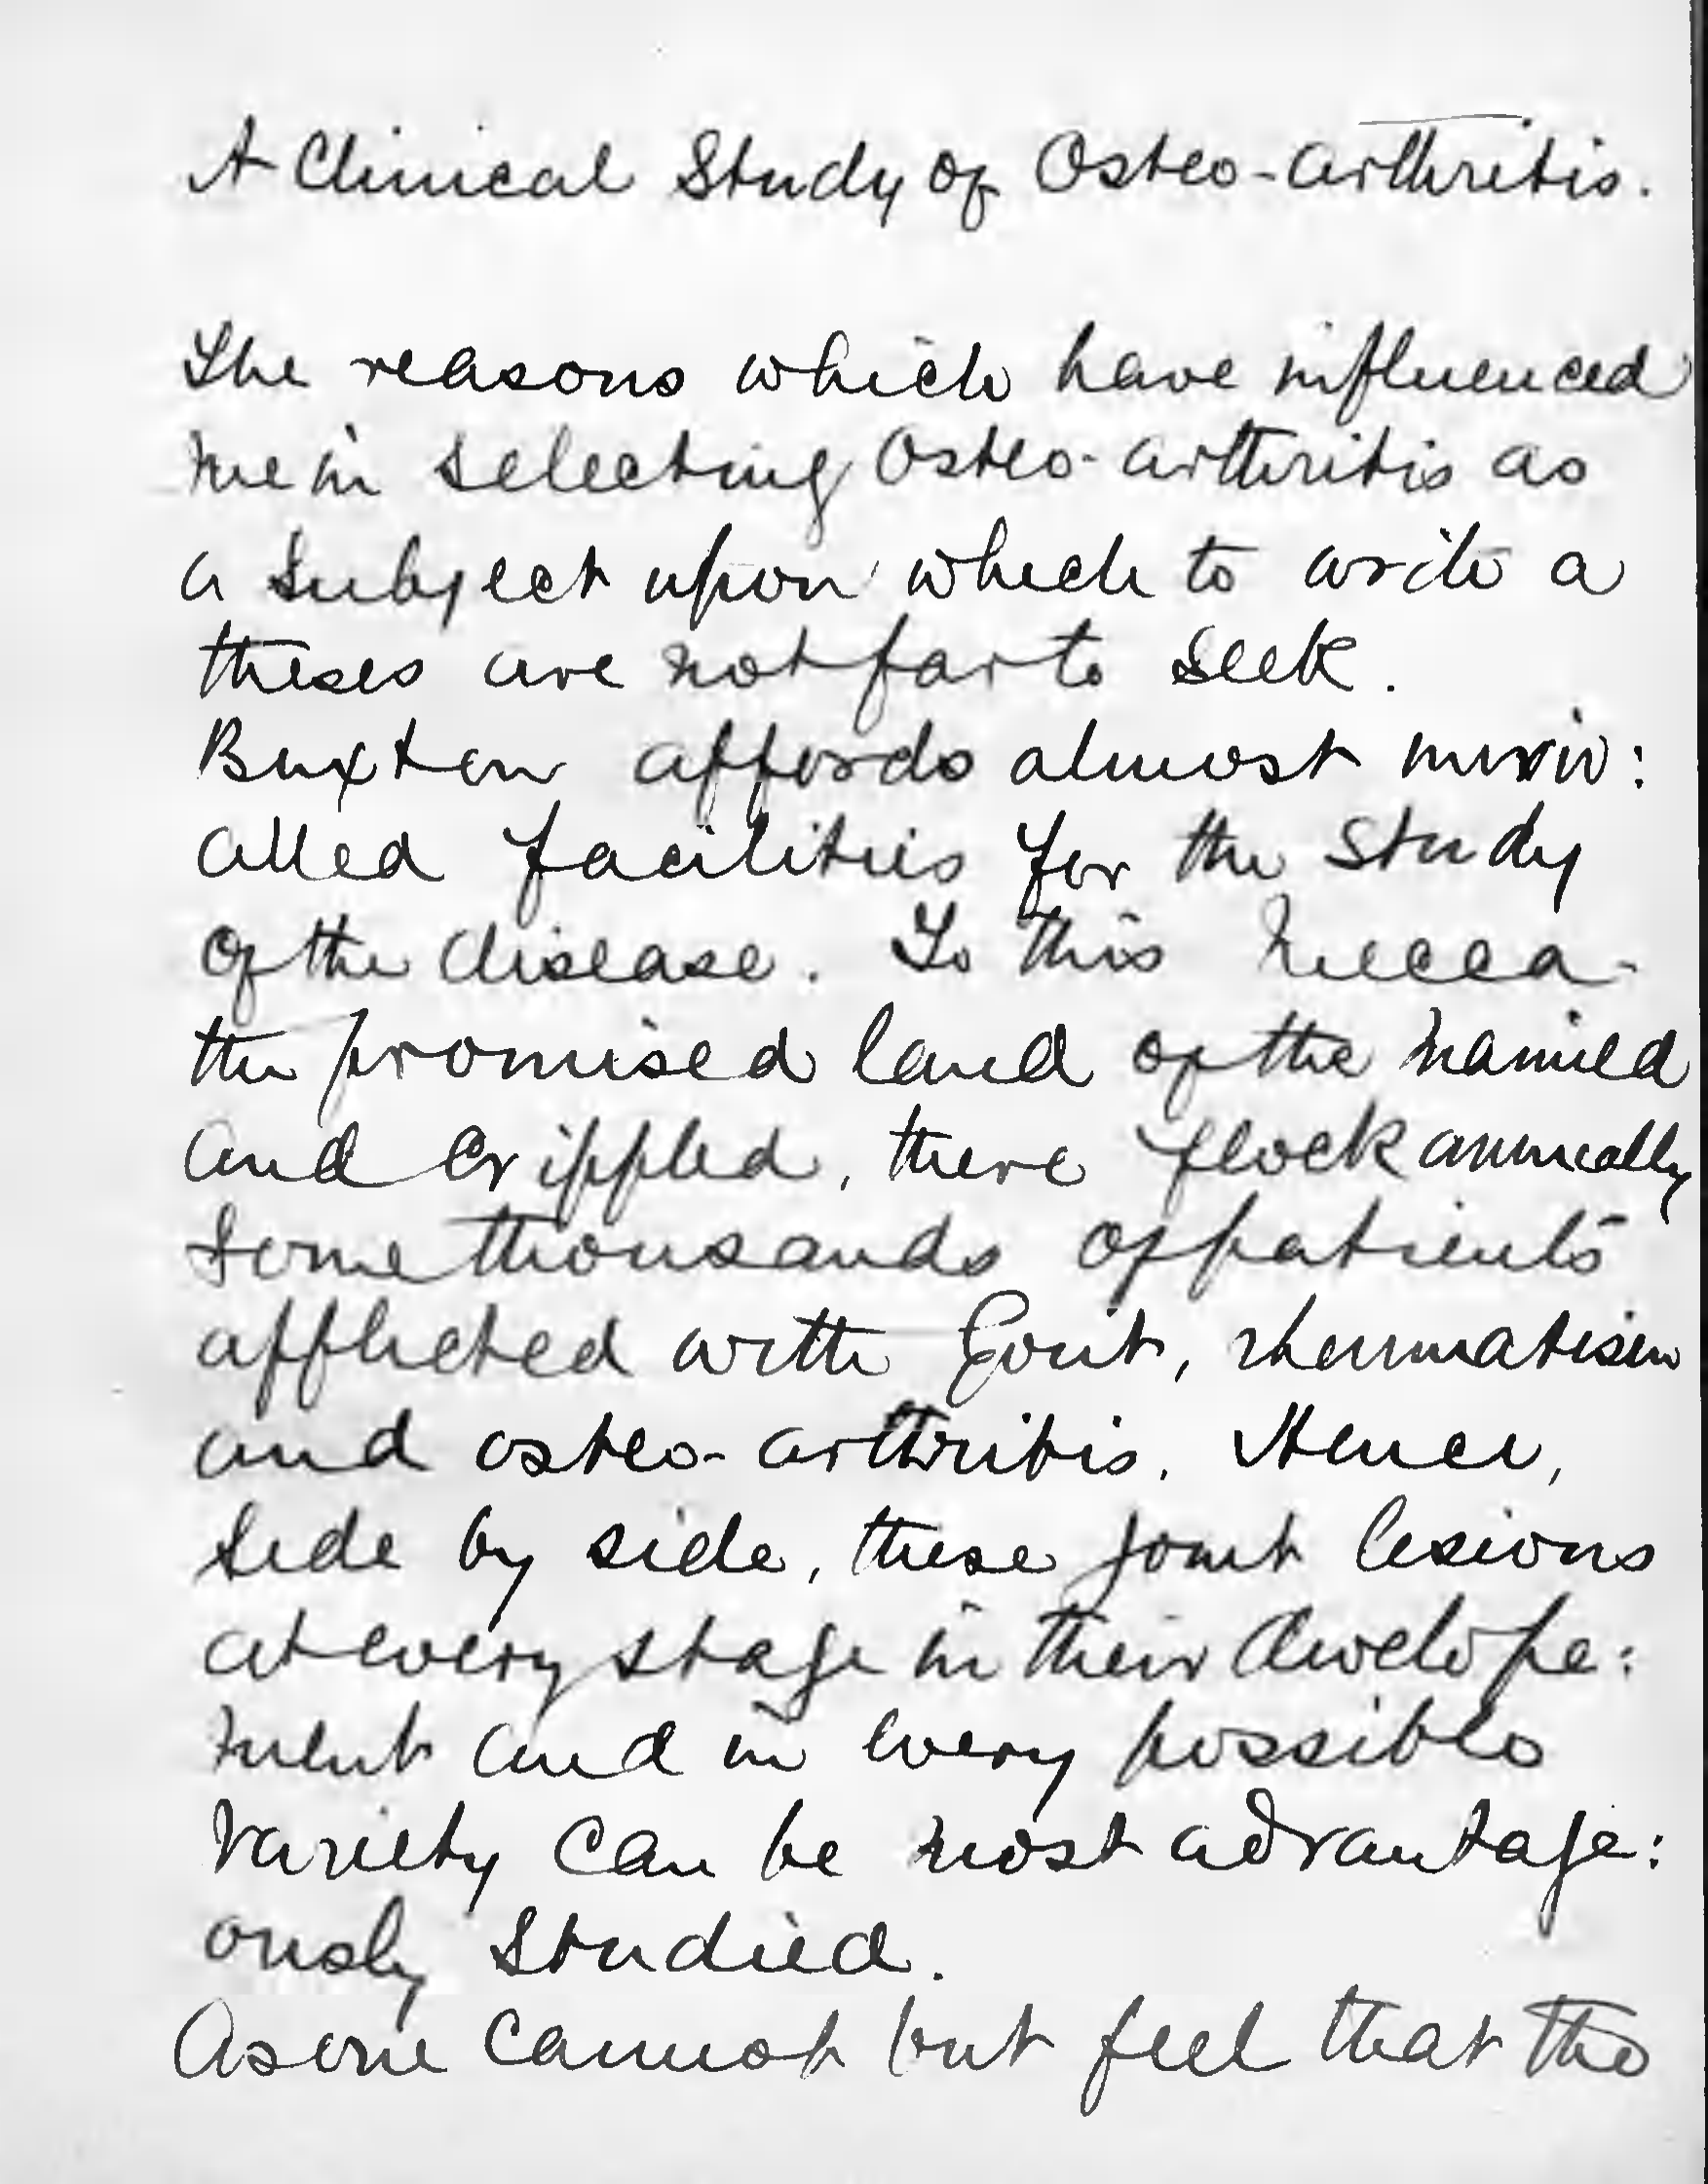 A Clinical Study of Osteo-arthritis.
The reasons which have influenced
me in selecting Osteo-arthritis as
a subject upon which to write a
thesis are not far to seek.
Buxton affords almost unriv:
alled facilities for the study
of the disease. To this Mecca -
the promised land of the maimed
and crippled, there flock annually
some thousands of patients
afflicted with Gout, rheumatism
and osteo-arthritis. Hence,
side by side, these joint lesions
at every stage in their develope:
ment and in every possible
variety can be most advantage:
ously studied.
As one cannot but feel that the